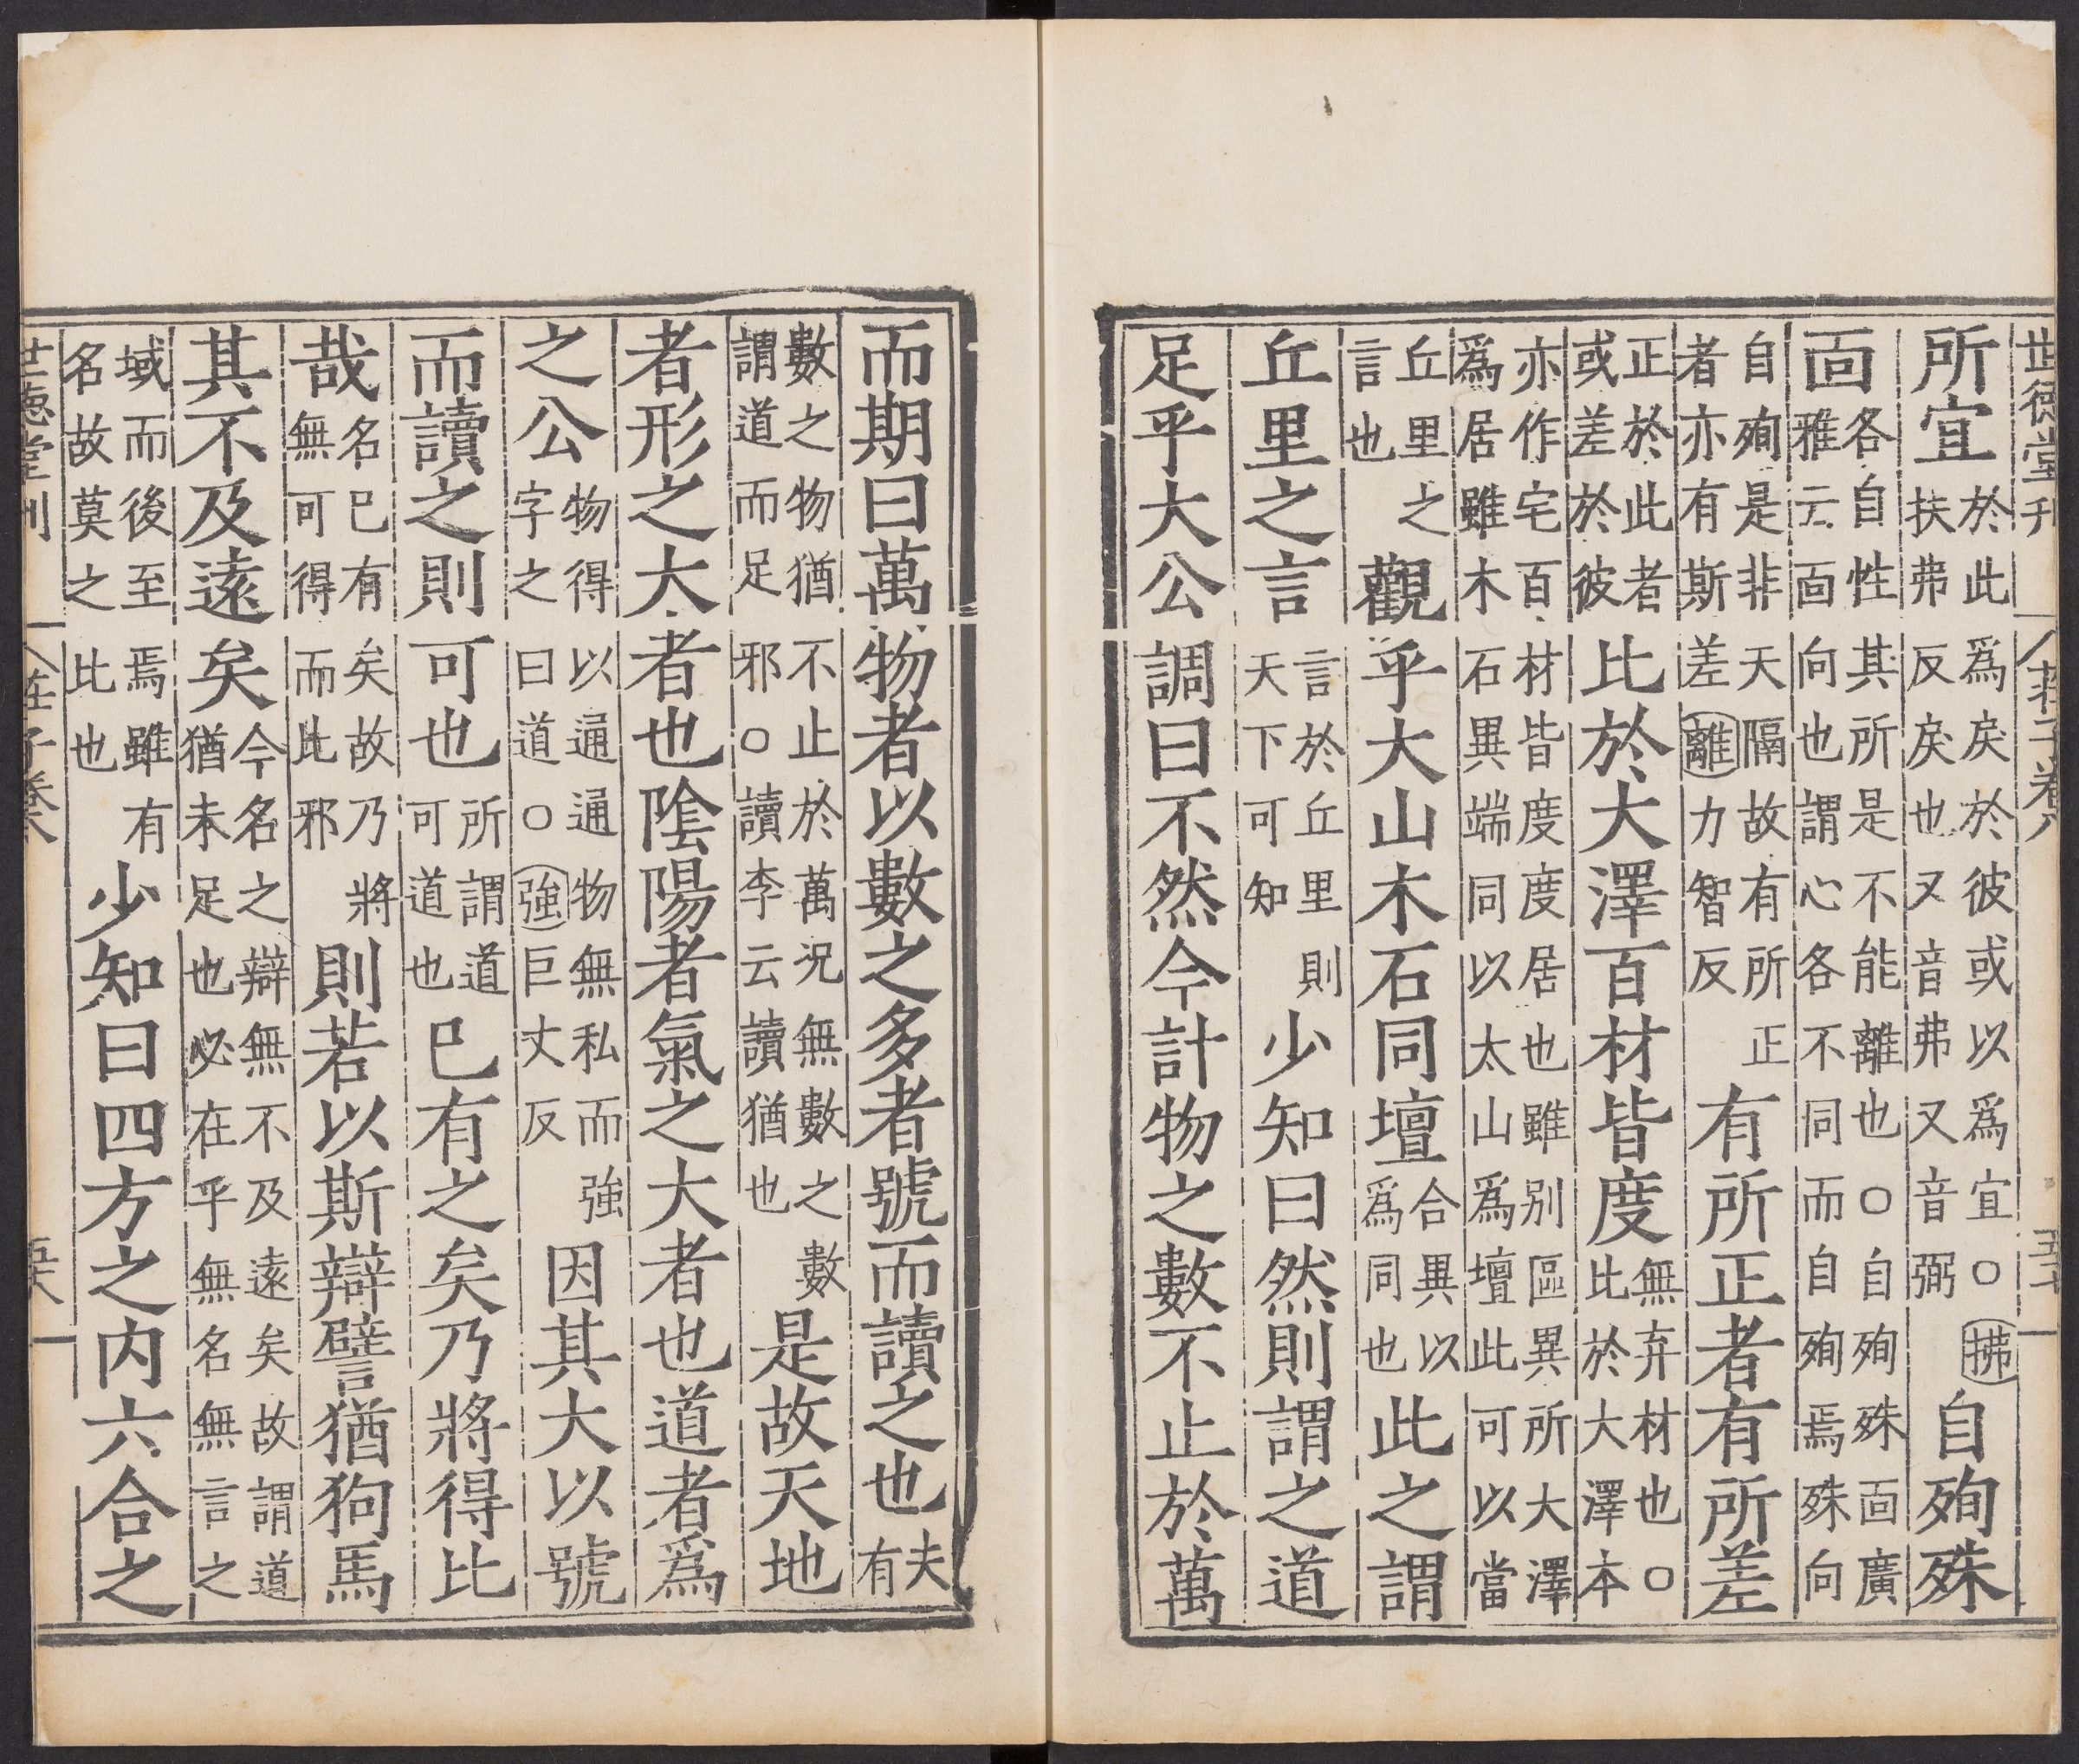 世德堂刊 莊子卷八
所宜於此爲戾於彼或以爲宜○拂扶弗反戾也又音弗又音弼自殉殊
靣各自性其所是不能離也○自殉殊靣廣雅云靣向也謂心各不同而自殉焉殊向
自殉是非天隔故有所正者亦有斯差離力智反有所正者有所差
正於此者或差於彼比於大澤百材皆度無弃材也○比於大澤本
亦作宅百材皆度度居也雖别區異所大澤爲居雖木石異端同以太山爲壇此可以當
丘里之言也觀乎大山木石同壇合異以爲同也此之謂
丘里之言言於丘里則天下可知少知曰然則謂之道
足乎大公調曰不然今計物之數不止於萬
而期曰萬物者以數之多者號而讀之也夫有
數之物猶不止於萬況無數之數謂道而足邪○讀李云讀猶也是故天地
者形之大者也陰陽者氣之大者也道者爲
之公物得以通通物無私而強字之曰道○強巨丈反因其大以號
而讀之則可也所謂道可道也已有之矣乃將得比
哉名已有矣故乃將無可得而比邪則若以斯辯譬猶狗馬
其不及遠矣今名之辯無不及遠矣故謂道猶未足也必在乎無名無言之
域而後至焉雖有名故莫之比也少知曰四方之内六合之
世德堂刊 莊子卷八 五十八